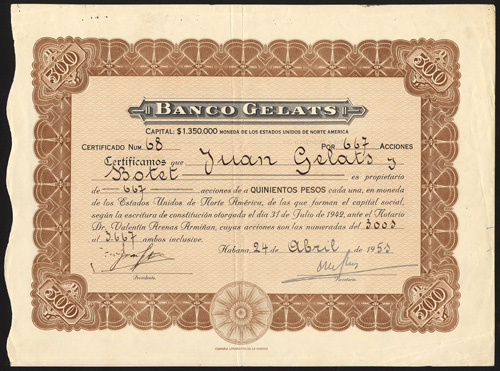 500 500
BANCO GELATS
CAPITAL: $1.350.000 MONEDA DE LOS ESTADOS UNIDOS DE NORTE AMERICA
CERTIFICADO NUM 68 POR 667 ACCIONES
Certificamos que Juan Gelats y
Botet es propietario
de -667- acciones de a QUINIENTOS PESOS cada una, en moneda
de los Estados Unidos de Norte América, de las que forman el capital social,
según la escritura de constitución otorgada el día 31 de Julio de 1942, ante el Notario
Dr. Valentín Arenas Armiñan, cuyas acciones son las numeradas del 3.001
al 3.667 ambos inclusive.
Habana, 24 de Abril de 1953
Presidente Secretario
500 500